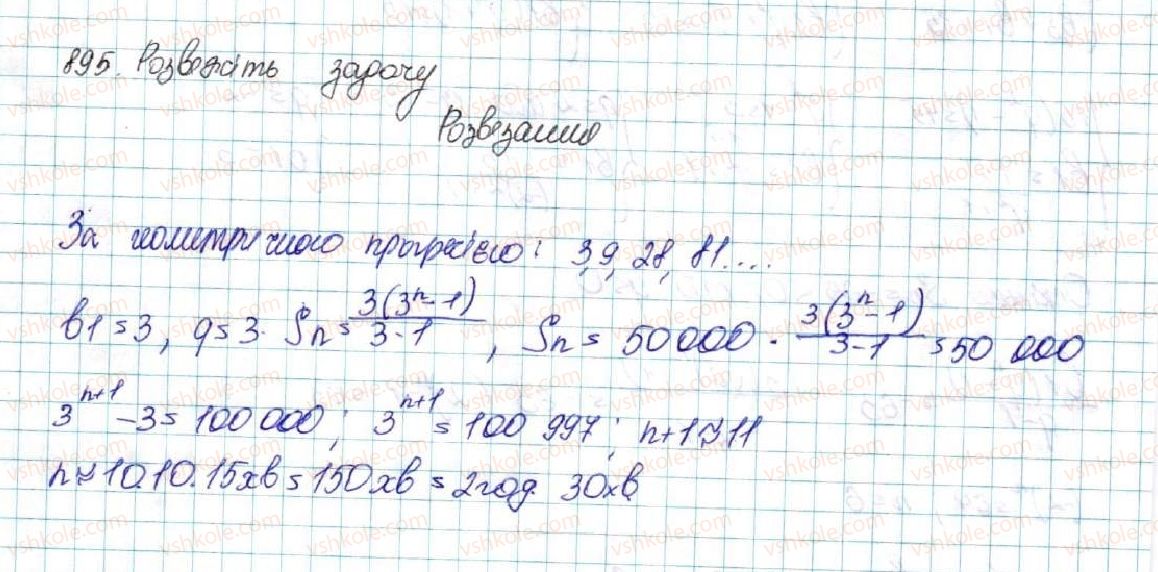 895. Розвежіть задачу
Розвезання
За геометричною прогресією: 3,9, 28, 81....
b1 = 3, q = 3. Sn = 3(3^n - 1)/3-1, Sn = 50 000. 3(3^n - 1)/3-1 = 50 000
3^n+1 - 3 = 100 000; 3^n+1 = 100 997; n+1 ≈ 11
n ≈ 10. 10. 15хв = 150хв = 2год. 30хв